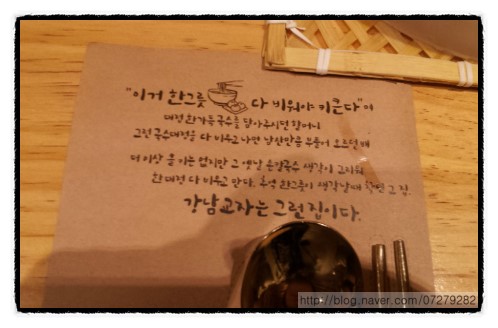 "이거 한그릇 다 비워야 키큰다"며
대접 한가득 국수를 담아주시던 할머니
그런 국수대접을 다 비우고 나면 남산만큼 부풀어 오르던 배
더이상 클 키는 없지만 그 옛날 손칼국수 생각이 고파와
한대접 다 비우고 만다. 추억 한그릇이 생각날때 찾던 그 집.
강남교자는 그런 집이다.
http://blog.naver.com/07279282